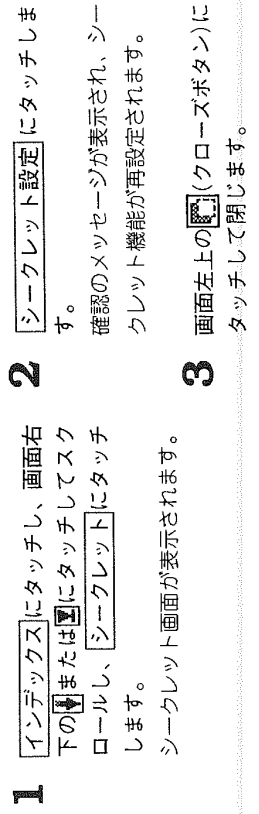 1 インデックスにタッチし、画面右
下の⬇または⤓にタッチしてスク
ロールし、シークレットにタッチ
します。
シークレット画面が表示されます。
2 シークレット設定にタッチしま
す。
確認のメッセージが表示され、シー
クレット機能が再設定されます。
3 画面左上の(クローズボタン)に
タッチして閉じます。